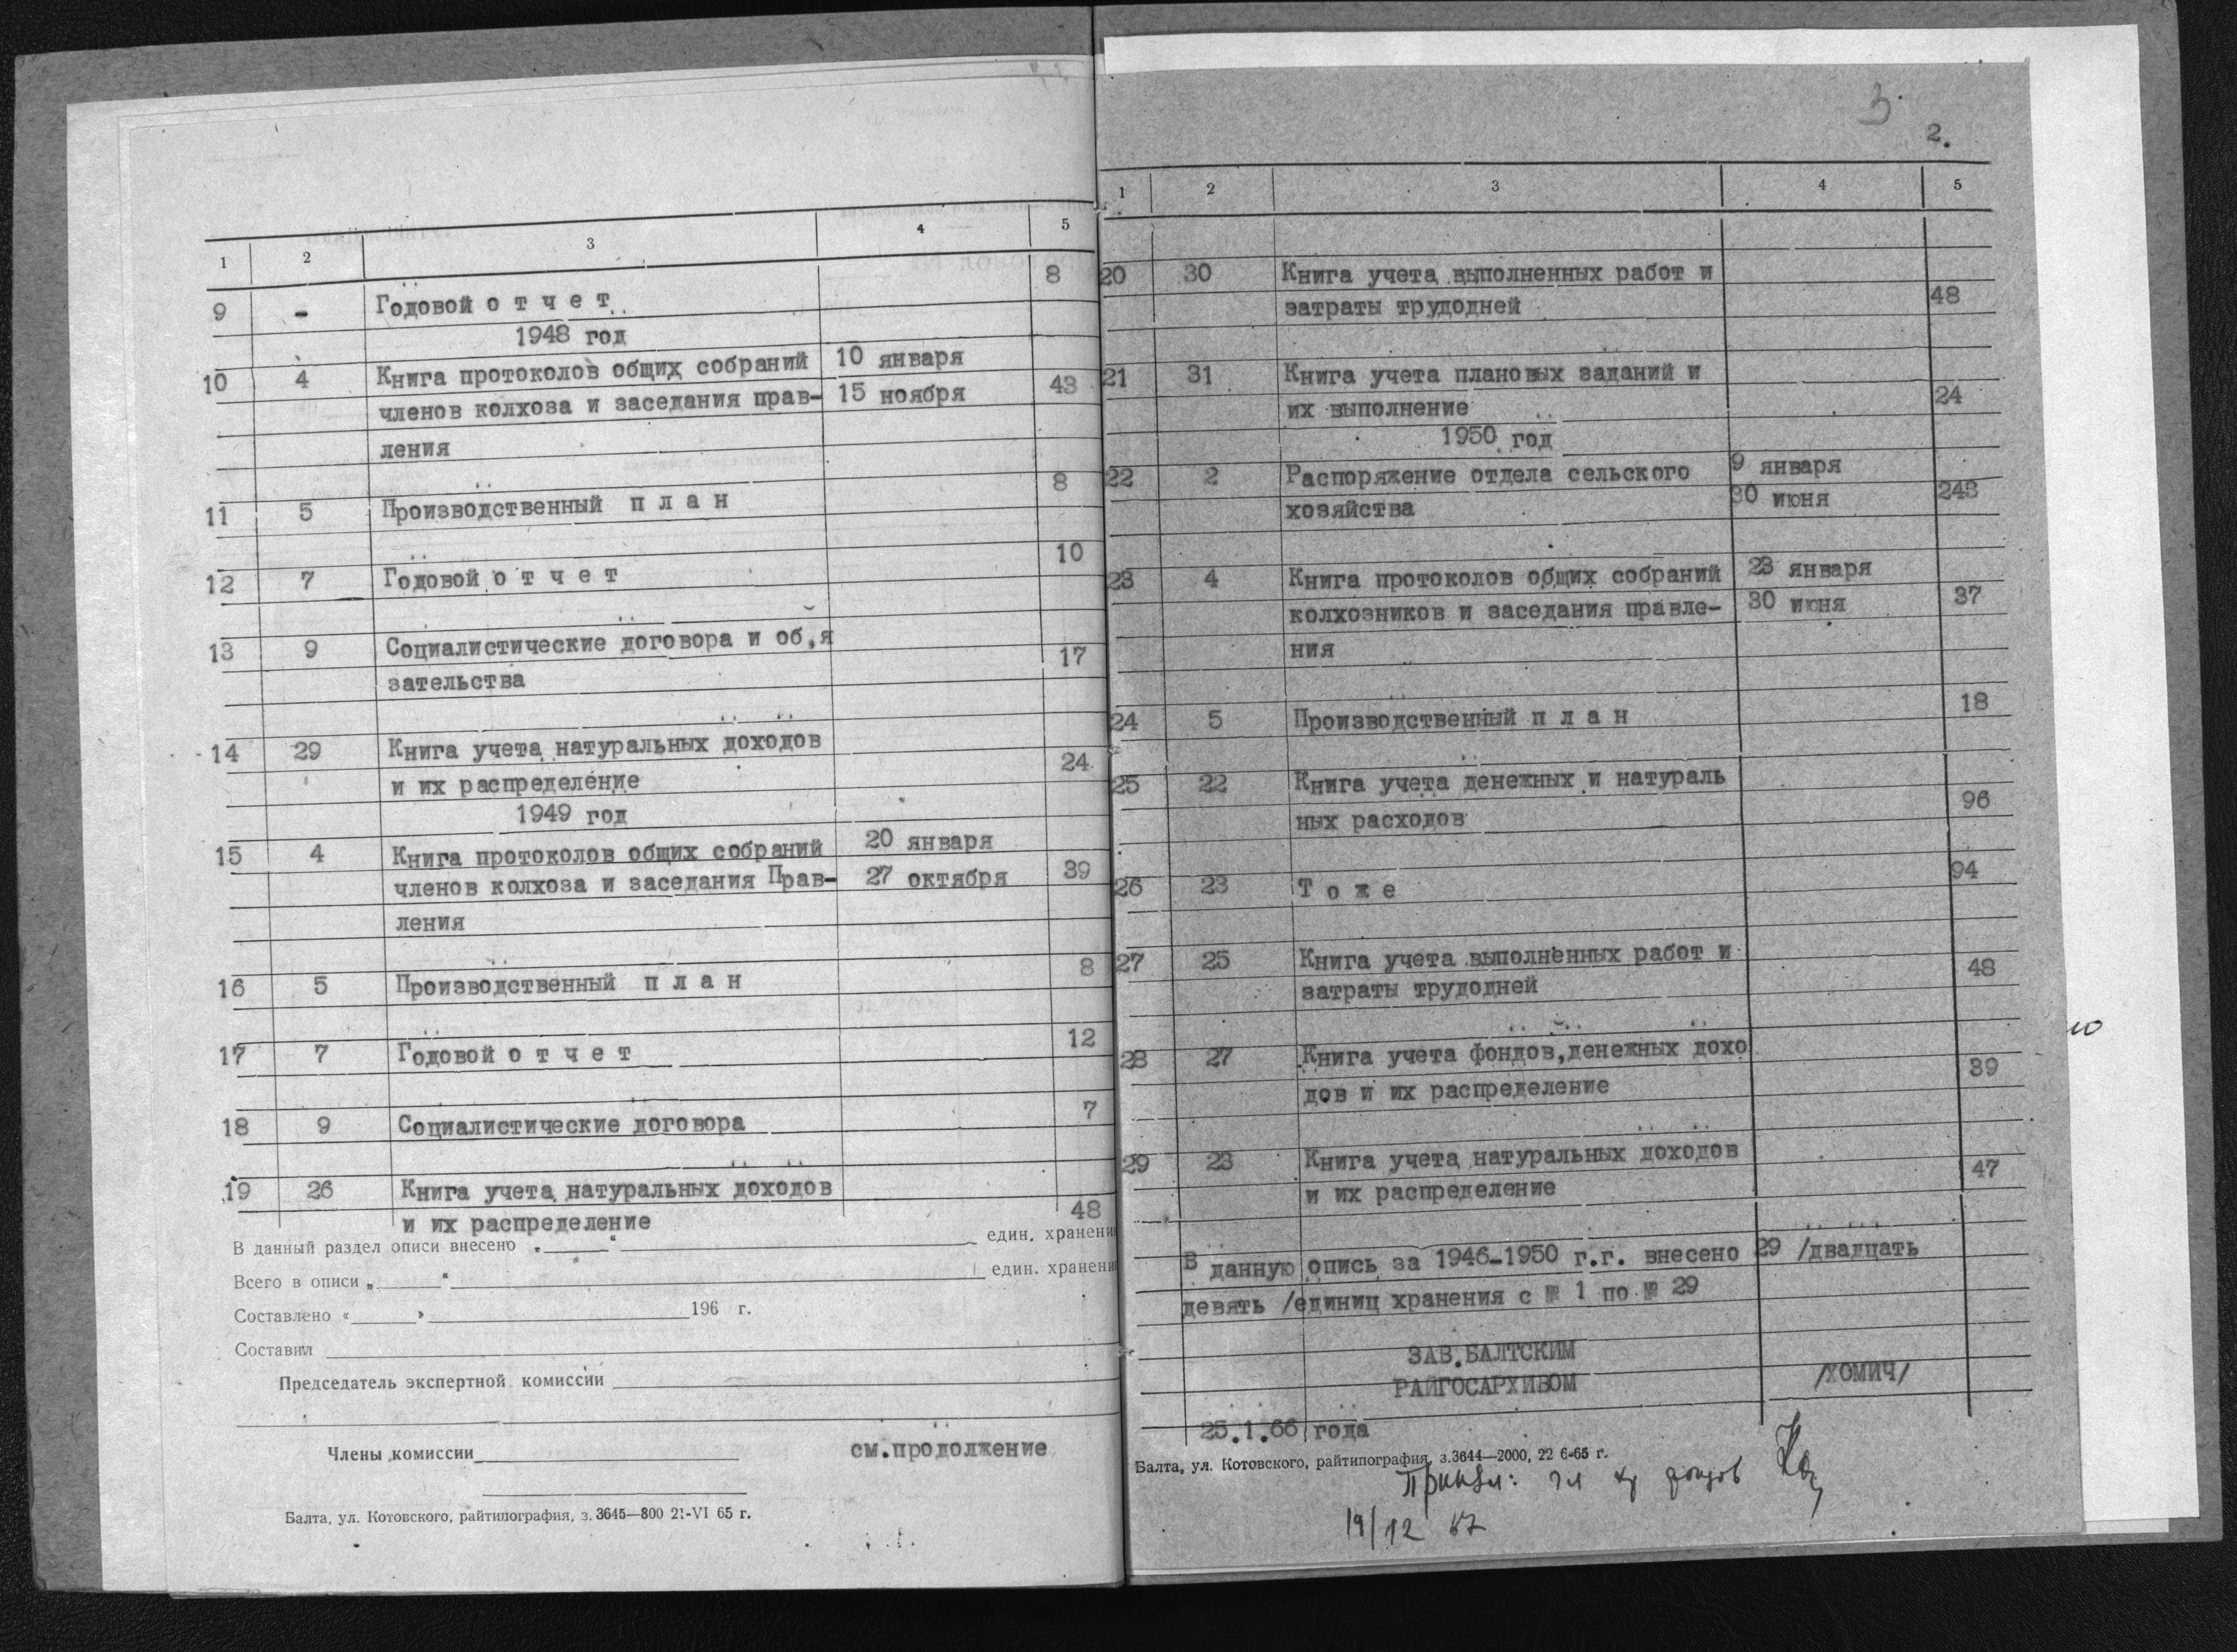 1 2 3 4 5
9 - Годовой о т ч е т 8
1948 год
10 4 Книга протоколов общих собраний 10 января
членов колхоза и заседания прав- 15 ноября 43
ления
11 5 Производственный п л а н 8
12 7 Годовой о т ч е т 10
13 9 Социалистические договора и об,я
зательства 17
14 29 Книга учета натуральных доходов
и их распределение 24
1949 год
15 4 Книга протоколов общих собраний 20 января
членов колхоза и заседания Прав- 27 октября 39
ления
16 5 Производственный п л а н 8
17 7 Годовой о т ч е т 12
18 9 Социалистические договора 7
19 26 Книга учета натуральных доходов
и их распределение 48
В данный раздел описи внесено „ “ един. хранени
Всего в описи „ “ един. хранени
Составлено « » 196 г.
Составил
Председатель экспертной комиссии
Члены комиссии
см.продолжение
Балта, ул. Котовского, райтипография, з. 3645—800 21-VI 65 г.
3
2.
1 2 3 4 5
20 30 Книга учета выполненных работ и
затраты трудодней 48
21 31 Книга учета плановых заданий и
их выполнение 24
1950 год
22 2 Распоряжение отдела сельского 9 января
хозяйства 30 июня 243
23 4 Книга протоколов общих собраний 23 января
колхозников и заседания правле- 30 июня 37
ния
24 5 Производственный п л а н 18
25 22 Книга учета денежных и натураль
ных расходов 96
26 23 Т о ж е 94
27 25 Книга учета выполненных работ и
затраты трудодней 48
28 27 Книга учета фондов,денежных дохо
дов и их распределение 39
29 23 Книга учета натуральных доходов
и их распределение 47
В данную опись за 1946-1950 г.г. внесено 29 /двадцать
девять /единиц хранения с № 1 по № 29
ЗАВ.БАЛТСКИМ
РАЙГОСАРХИВОМ /ХОМИЧ/
25.1.66 года
Балта, ул. Котовского, райтипография, з.3644—2000, 22 6-65 г.
Принял: гл хр фондов
19/12 67